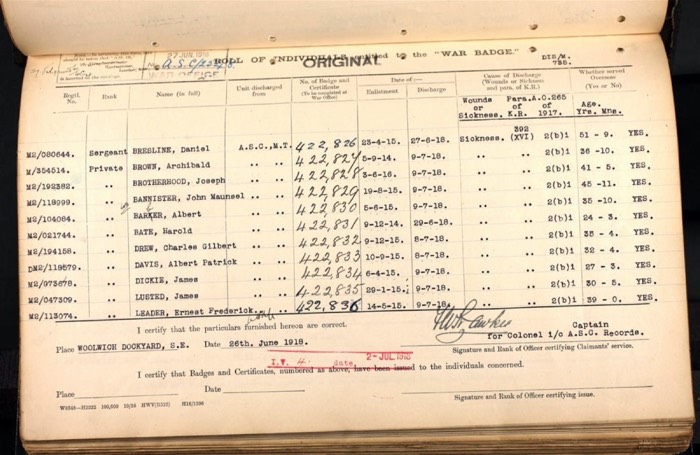 27 JUN 1918
No. A.S.C/
WAR OFFICE
ROLL OF INDIVIDUALS entitled to the "WAR BADGE."
ORIGINAL
DIS/M.
735.
Regtl. No. Rank Name (in full) Unit discharged from No. of Badge and Certificate (To be completed at War Office) Date of— Enlistment Discharge Cause of Discharge (Wounds or Sickness and para. of K.R.) Whether served Overseas (Yes or No)
Wounds or Sickness. Para. of K.R. A.O.265 of 1917. Age. Yrs. Mns.
392
M2/080644. Sergeant BRESLINE, Daniel A.S.C.,M.T. 422,826 23-4-15. 27-6-18. Sickness. (XVI) 2(b)1 51 - 9. YES.
M/354514. Private BROWN, Archibald " " 422,827 5-9-14. 9-7-18. " " 2(b)1 36 -10. YES.
M2/192382. " BROTHERHOOD, Joseph " " 422,828 3-6-16. 9-7-18. " " 2(b)1 41 - 5. YES.
M2/118999. " BANNISTER, John Maunsel " " 422,829 19-8-15. 9-7-18. " " 2(b)1 45 -11. YES.
M2/104084. " BARKER, Albert " " 422,830 5-6-15. 9-7-18. " " 2(b)1 35 -10. YES.
M2/021744. " BATE, Harold " " 422,831 9-12-14. 29-6-18. " " 2(b)1 24 - 3. YES.
M2/194158. " DREW, Charles Gilbert " " 422,832 9-12-15. 8-7-18. " " 2(b)1 35 - 4. YES.
DM2/119579. " DAVIS, Albert Patrick " " 422,833 10-9-15. 8-7-18. " " 2(b)1 32 - 4. YES.
M2/073678. " DICKIE, James " " 422,834 6-4-15. 9-7-18. " " 2(b)1 27 - 3. YES.
M2/047309. " LUSTED, James " " 422,835 29-1-15. 9-7-18. " " 2(b)1 30 - 5. YES.
M2/113074. " LEADER, Ernest Frederick " " 422,836 14-5-15. 9-7-18. " " 2(b)1 39 - 0. YES.
I certify that the particulars furnished hereon are correct.
Captain
for Colonel i/c A.S.C. Records.
Place WOOLWICH DOCKYARD, S.E. Date 26th. June 1918.
Signature and Rank of Officer certifying Claimants' service.
I.V. 4. date, 2-JUL 1918
I certify that Badges and Certificates, numbered as above, have been issued to the individuals concerned.
Place Date
Signature and Rank of Officer certifying issue.